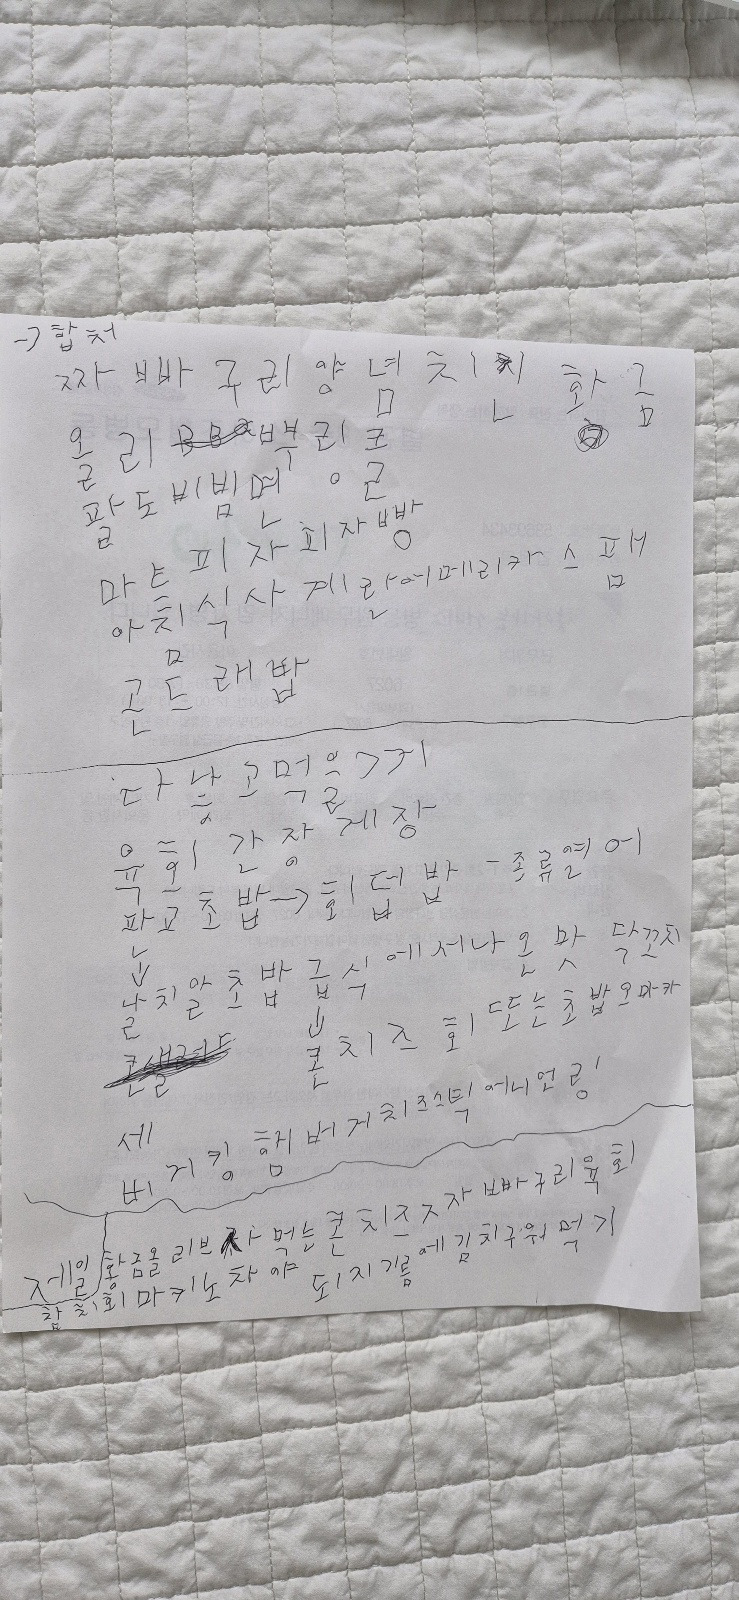 → 합처
짜 빠 구 리 양 념 치 킨 황 금
올 리 부 링 클
팔 도 비 빔 면
마 트 피 자 피 자 빵
아 침 식 사 계 란 아 메 리 카 스 팸
곤 드 래 밥
다 낳 고 먹 을 거 기
육 회 간 장 게 장
판 교 초 밥 → 회 덥 밥 - 종 류 열 어
날 치 알 초 밥 급 식 에 서 나 온 맛 닥 꼬치
콘 치 즈 회 또 는 초 밥 오 마 카
세
버 거 킹 햄 버 거 치 즈 스 틱 어 니 언 링
제 일 황 금 올 리 브 사 먹 는 콘 치 즈 짜 빠 구 리 육 회
참 치 회 마 키 노 차 야 되 지 기 름 에 김 치 구 워 먹 기